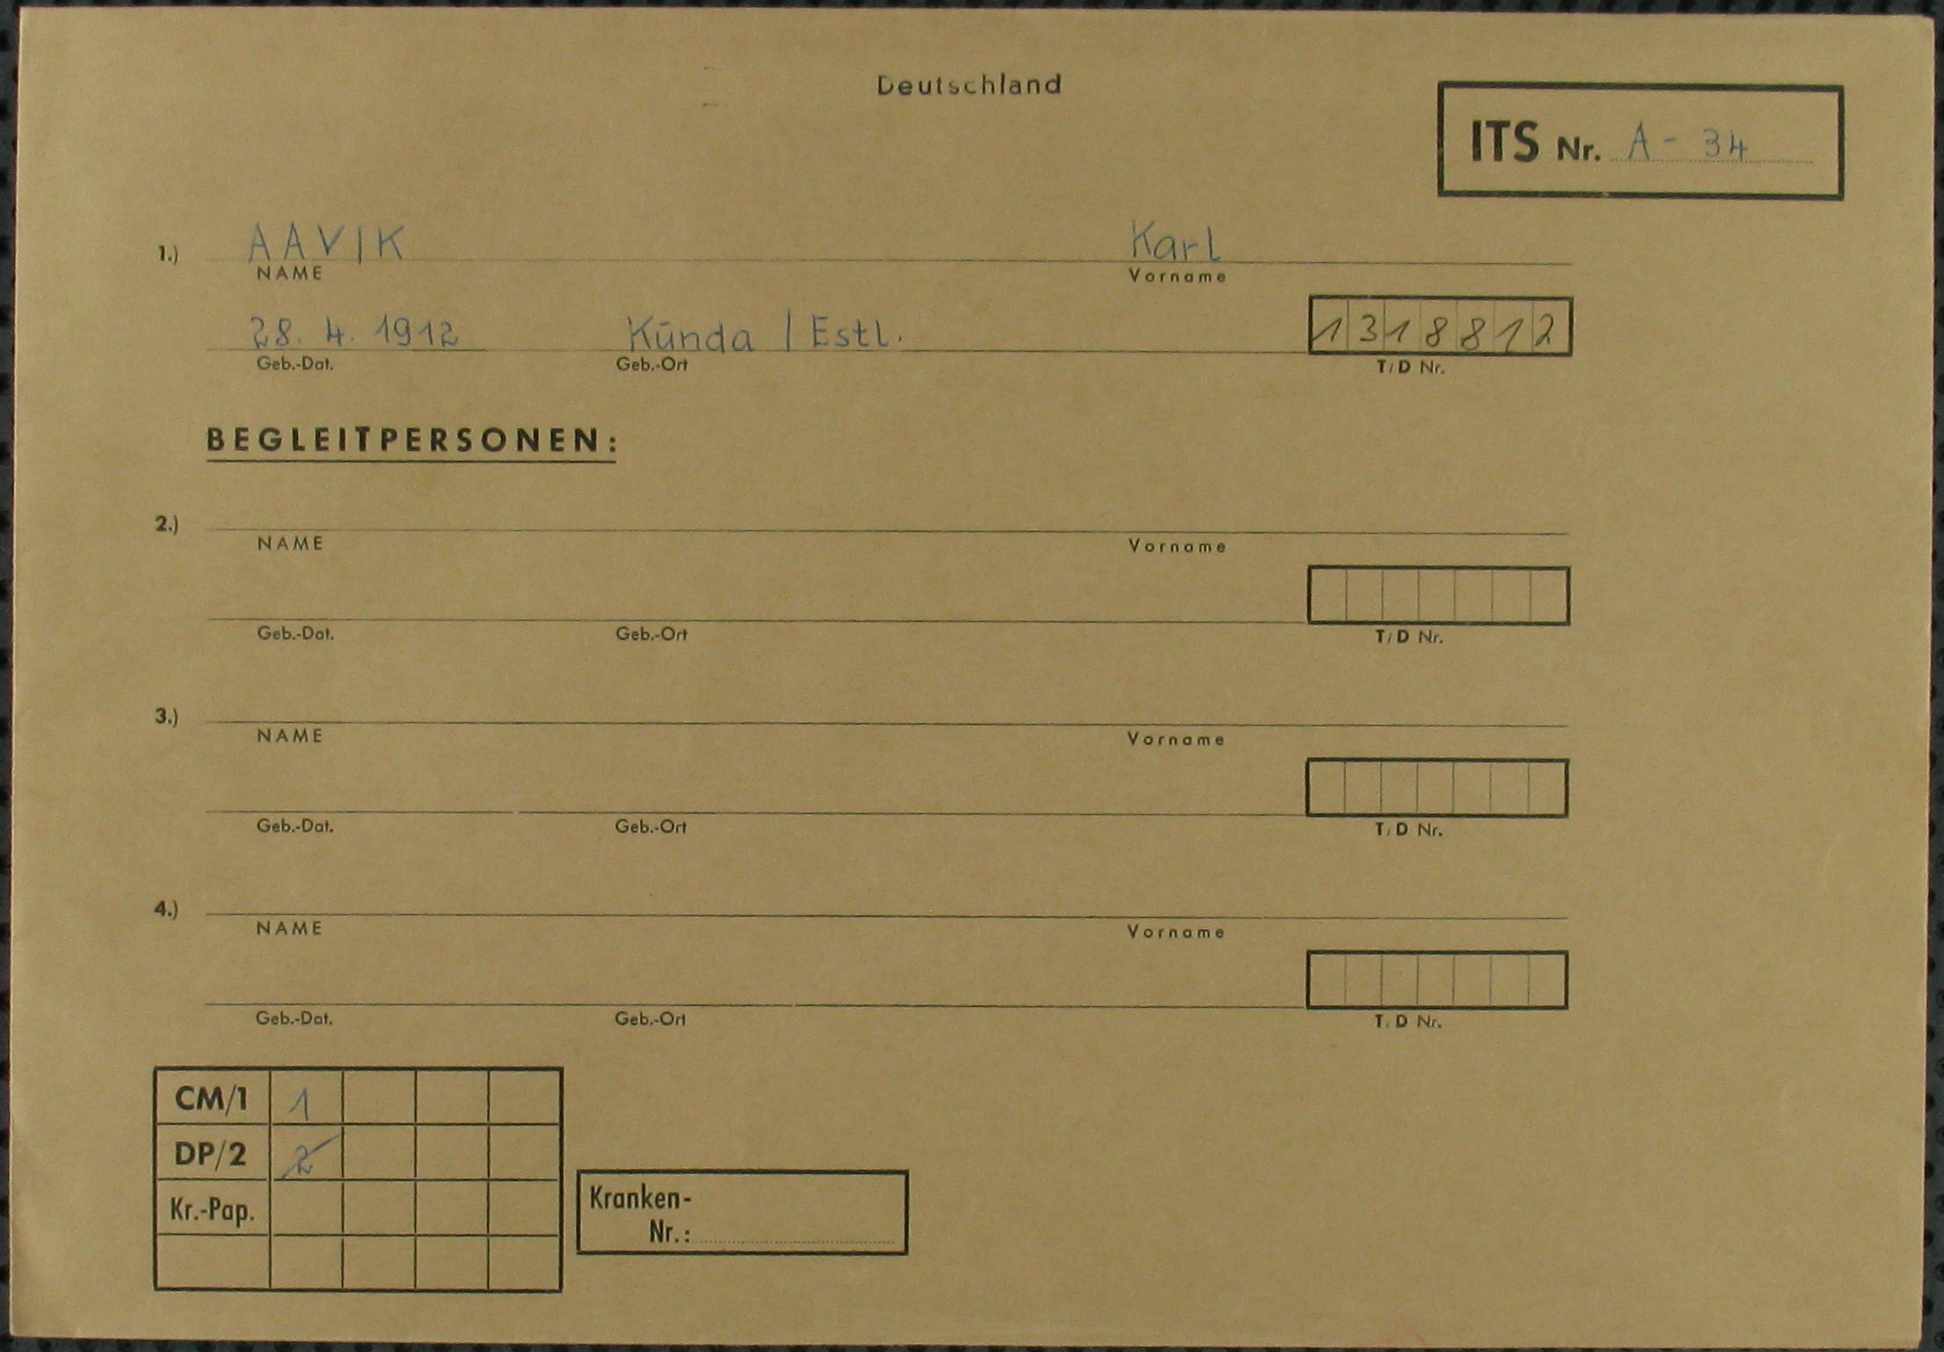 Deutschland
ITS Nr. A - 34
1.) AAVIK Karl
NAME Vorname
28. 4. 1912 Kūnda / Estl. 1318812
Geb.-Dat. Geb.-Ort T/D Nr.
BEGLEITPERSONEN:
2.)
NAME Vorname
Geb.-Dat. Geb.-Ort T/D Nr.
3.)
NAME Vorname
Geb.-Dat. Geb.-Ort T/D Nr.
4.)
NAME Vorname
Geb.-Dat. Geb.-Ort T/D Nr.
CM/1 1
DP/2 2
Kr.-Pap.
Kranken-
Nr.: